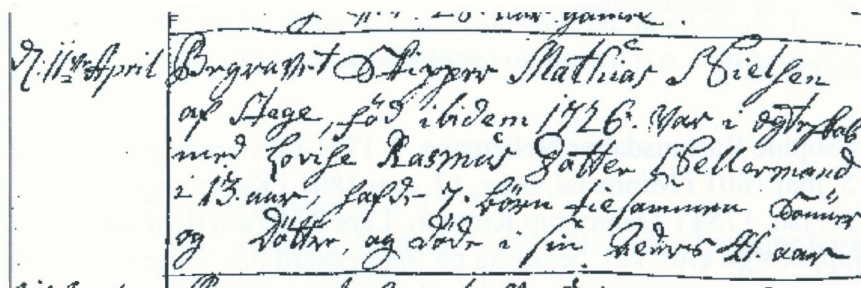 28. aar gamle.
d. 11te April Begravet Skipper Mathias Nielsen
af Stege, föd ibidem 1726. Var i ægteskab
med Lovise Rasmus Datter Kellermand
i 13. aar, hafde 7. börn tilsammen Sönner
og Dötter, og döde i sin Alders 41. aar